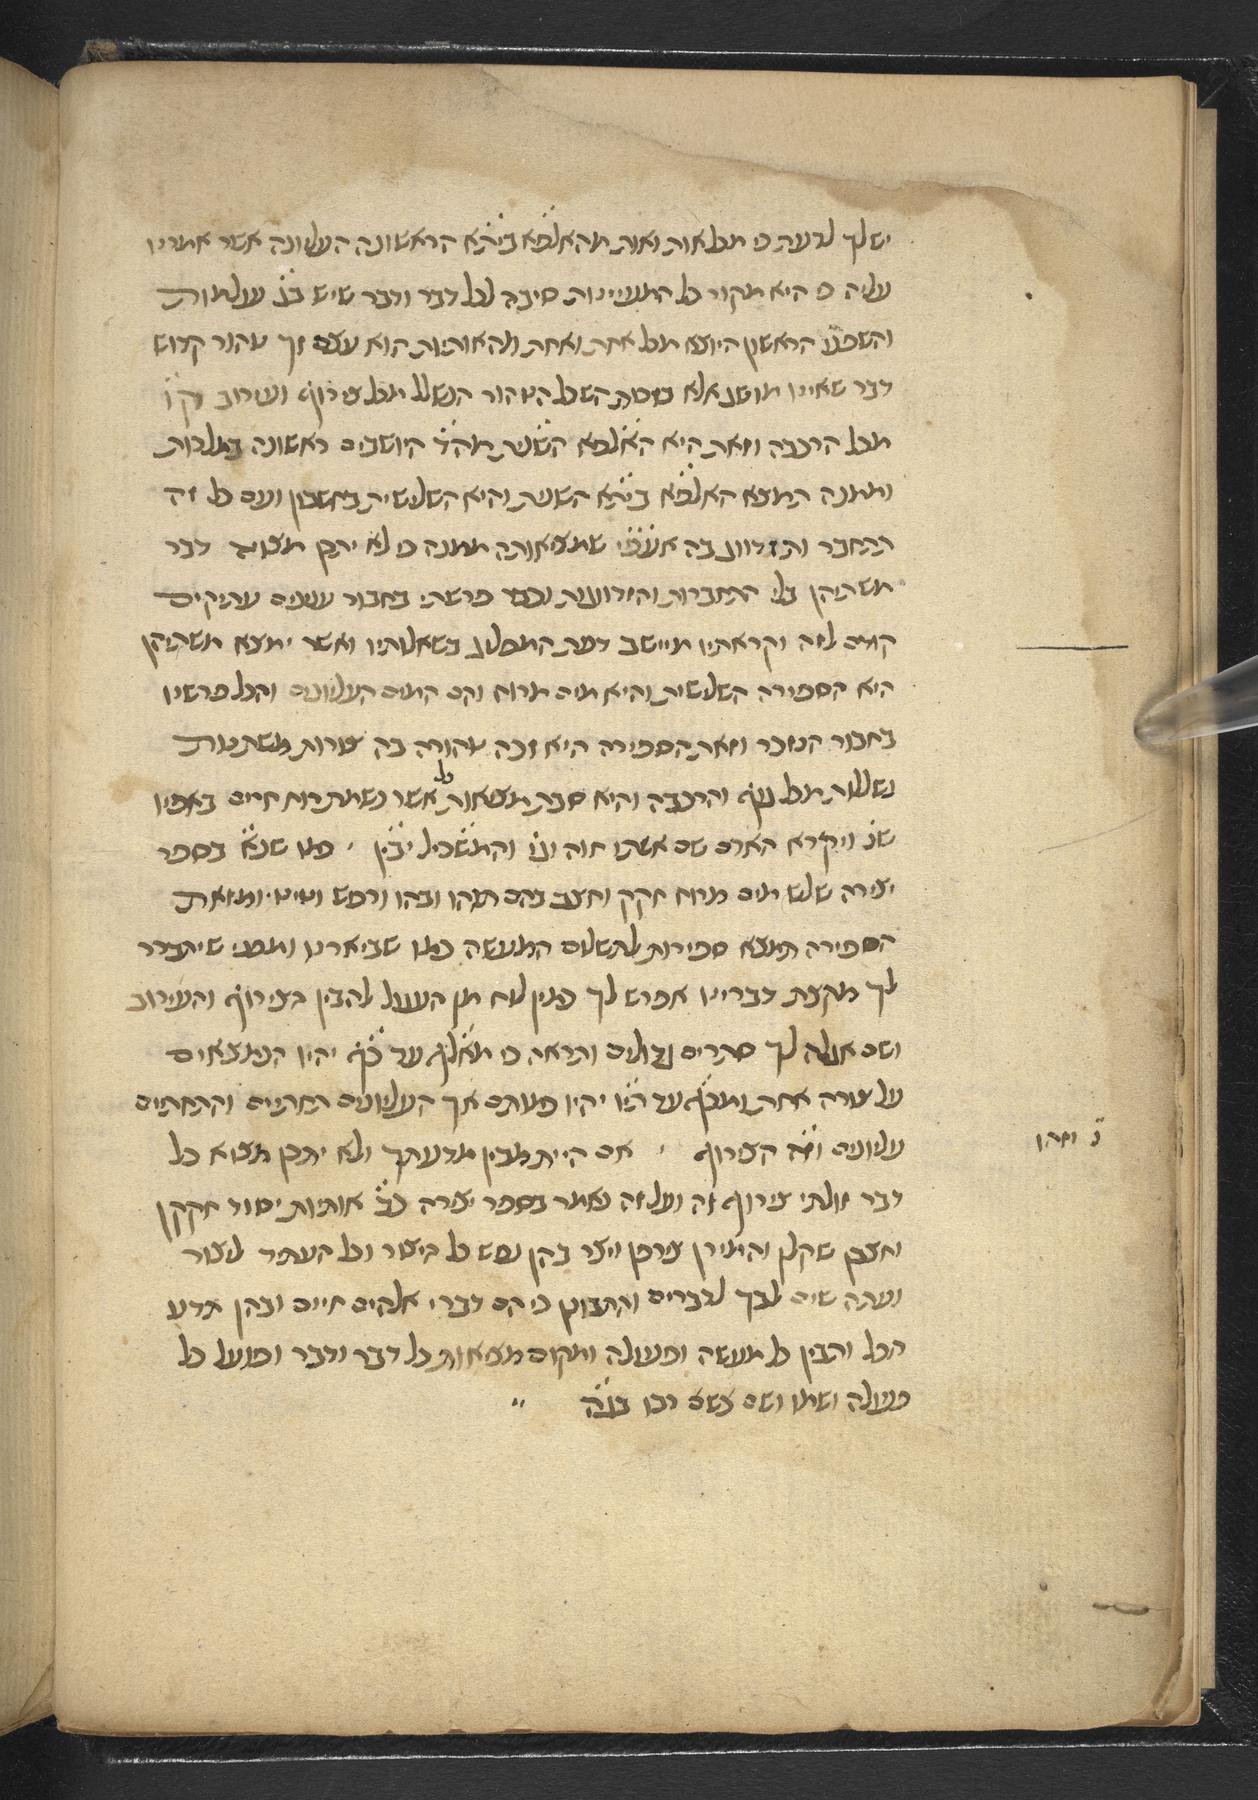 יש לך לדעת כי מכל אות ואות מהאלפא ביתא הראשונה העליונה אשר אמרנו
עליה כי היא מקור כל המעיינות סיבה לכל דבר ודבר שיש בו עולמות
והשפע הראשון היוצא מכל אחת ואחת מהאותיות הוא עצם זך טהור קדוש
דבר שאינו מושג אלא בכח השכל הטהור הנשלל מכל צירוף ועירוב
מכל הרכבה וזאת היא האלפא השנית היושבים ראשונה במלכות
וממנה תמצא האלפא ביתא השנית והיא השלישית בחשבון ועם כל זה
תתחבר ותזדווג בה אעפי שמציאותה ממנה כי לא יתכן מציאות דבר
משתיהן בלי התחברות והזדווגות וכבר פרשתי בחבור ענינים עתיקים
קודם לזה וקראתיו מיישב דעת המפליג בשאלותיו ואשר ימצא משתיהן
היא הספירה השלישית והיא מים מרוח והם המים העליונים והכל פרשנו
בחבור הנזכר וזאת הספירה היא זכה טהורה בה צורות משתנות
נשללות מכל גוף והרכבה והיא סבת מציאות כל אשר נשמת רוח חיים באפיו
שנ ויקרא האדם שם אשתו חוה וגו והמשכיל יבין כמו שנא בספר
יצירה שלש מים מרוח חקק וחצב בהם תהו ובהו ורפש וטיט ומזאת
הספירה תמצא ספירות להשלים המעשה כמו שביארנו ומפני שיתברר
לך מקצת דברינו אפרש לך כמין לוח מן העגול להבין הצירוף והעירוב
ושם אגלה לך סתרים גדולים ותראה כי מאלף עד כף יהיו הנמצאים
על צורה אחת ומכף עד תיו יהיו כמותם אך העליונים תחתיים והתחתיים
עליונים וזה הצירוף אם היית מבין מדעתך ולא יתכן תצוא כל
דבר זולתי צירוף זה ועל זה נאמר בספר יצירה כב אותיות יסוד חקקן
וחצבן שקלן והמירן צירפן ויצר בהן נפש כל היצור וכל העתיד ליצור
ועתה שים לבך לדברים והתבונן כי הם דברי אלהים חיים ובהן תדע
הכל ותבין כל מעשה ופעולה ומקום מציאות כל דבר ודבר ופועל כל
פעולה ושמו ושם
נ וזהו